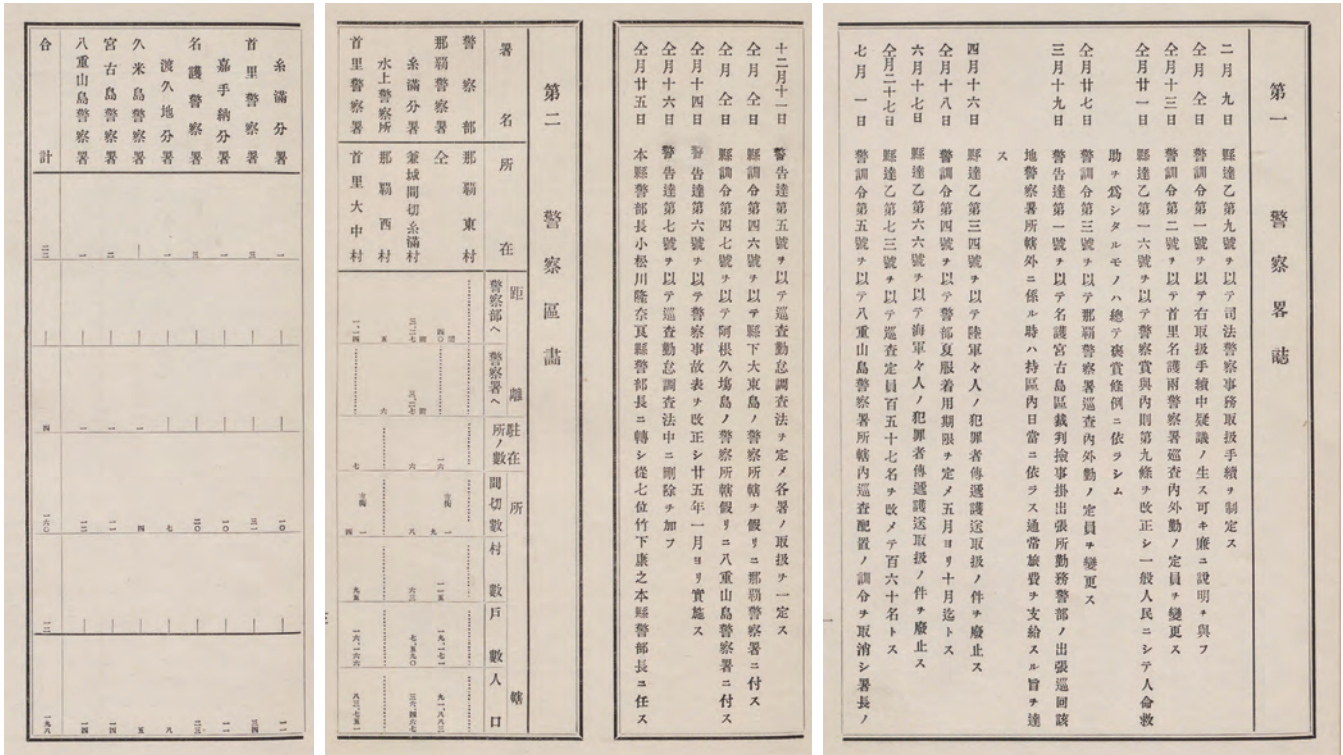 第一 警察畧誌
二月九日 縣達乙第九號ヲ以テ司法警察事務取扱手續ヲ制定ス
仝月仝日 警訓令第一號ヲ以テ右取扱手續中疑議ノ生ス可キ廉ニ説明ヲ與フ
仝月十三日 警訓令第二號ヲ以テ首里名護兩警察署巡査內外勤ノ定員ヲ變更ス
仝月廿一日 縣達乙第一六號ヲ以テ警察賞與內則第九條ヲ改正シ一般人民ニシテ人命救
助ヲ爲シタルモノハ總テ褒賞條例ニ依ラシム
仝月廿七日 警訓令第三號ヲ以テ那覇警察署巡査內外勤ノ定員ヲ變更ス
三月十九日 警告達第一號ヲ以テ名護宮古島區裁判撿事掛出張所勤務警部ノ出張巡回該
地警察署所轄外ニ係ル時ハ持區內日當ニ依ラス通常旅費ヲ支給スル旨ヲ達
ス
四月十六日 縣達乙第三四號ヲ以テ陸軍々人ノ犯罪者傳遞護送取扱ノ件ヲ廢止ス
仝月十八日 警訓令第四號ヲ以テ警部夏服着用期限ヲ定メ五月ヨリ十月迄トス
六月十七日 縣達乙第六六號ヲ以テ海軍々人ノ犯罪者傳遞護送取扱ノ件ヲ廢止ス
仝月二十七日 縣達乙第七三號ヲ以テ巡査定員百五十七名ヲ改メテ百六十名トス
七月一日 警訓令第五號ヲ以テ八重山島警察署所轄內巡査配置ノ訓令ヲ取消シ署長ノ
十二月十一日 警告達第五號ヲ以テ巡査勤怠調査法ヲ定メ各署ノ取扱ヲ一定ス
仝月仝日 縣訓令第四六號ヲ以テ縣下大東島ノ警察所轄ヲ假リニ那覇警察署ニ付ス
仝月仝日 縣訓令第四七號ヲ以テ阿根久塲島ノ警察所轄假リニ八重山島警察署ニ付ス
仝月十四日 警告達第六號ヲ以テ警察事故表ヲ改正シ廿五年一月ヨリ實施ス
仝月十六日 警告達第七號ヲ以テ巡査勤怠調査法中ニ刪除ヲ加フ
仝月廿五日 本縣警部長小松川隆奈良縣警部長ニ轉シ從七位竹下康之本縣警部長ニ任ス
第二 警察區畫
署名 所在 距離 警察部へ 警察署へ 駐在所ノ數 所轄 間切數 村數 戶數 人口
警察部 那覇東村
那覇警察署 仝 四〇 一六 九 一一五 一九、一七一 九一、八八三
糸滿分署 兼城間切糸滿村 三、二七 三、二七 六 八 六三 七、五九〇 三六、四六七
水上警察所 那覇西村 五 六
首里警察署 首里大中村 一、二四 七 四 九五 一六、一六六 八三、七五一
糸滿分署 一 一〇 一一
首里警察署 三 三一 三四
嘉手納分署 一 一〇 一一
名護警察署 三 二〇 二三
渡久地分署 一 七 八
久米島警察署 一 四 五
宮古島警察署 二 一 一一 一四
八重山島警察署 一 一 一二 一四
合計 二二 四 一六〇 一二 一九八